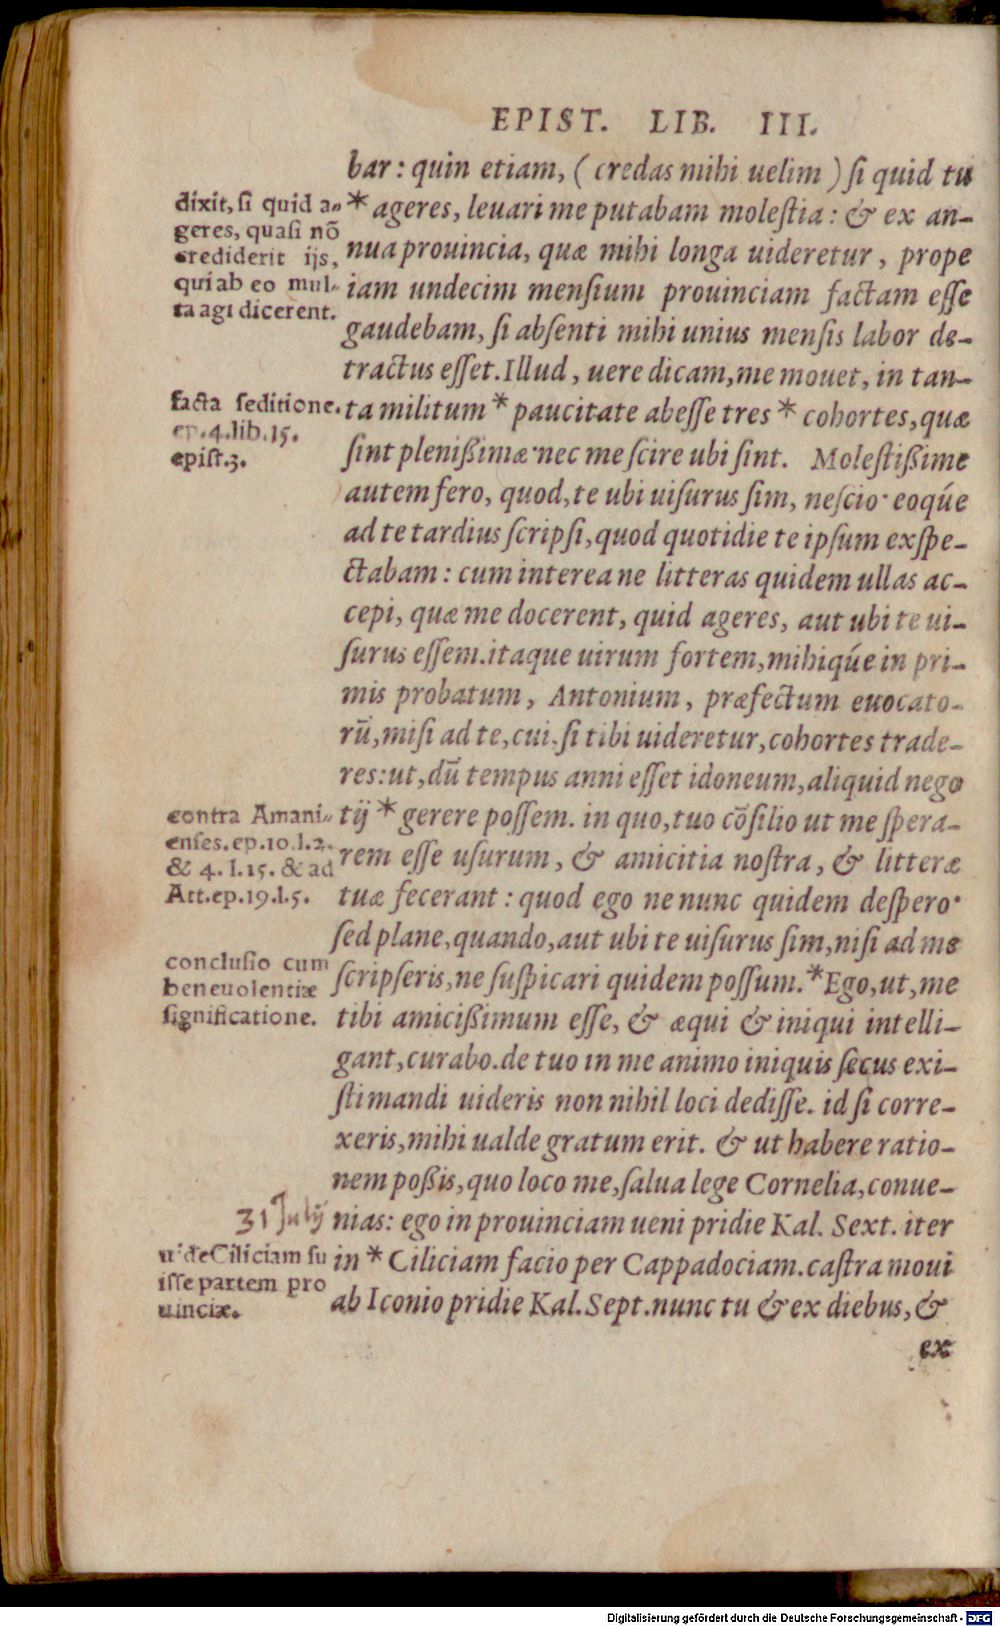 EPIST. LIB. III.
bar: quin etiam, ( credas mihi uelim ) si quid tu
* ageres, leuari me putabam molestia: & ex an-
nua prouincia, quæ mihi longa uideretur, prope
iam undecim mensium prouinciam factam esse
gaudebam, si absenti mihi unius mensis labor de-
tractus esset. Illud, uere dicam, me mouet, in tan-
ta militum * paucitate abesse tres * cohortes, quæ
sint plenißimæ· nec me scire ubi sint. Molestißime
autem fero, quod, te ubi uisurus sim, nescio· eoqúe
ad te tardius scripsi, quod quotidie te ipsum exspe-
ctabam: cum interea ne litteras quidem ullas ac-
cepi, quæ me docerent, quid ageres, aut ubi te ui-
surus essem. itaque uirum fortem, mihiqúe in pri-
mis probatum, Antonium, præfectum euocato-
rũ, misi ad te, cui, si tibi uideretur, cohortes trade-
res: ut, dũ tempus anni esset idoneum, aliquid nego
tij * gerere possem. in quo, tuo cõsilio ut me spera-
rem esse usurum, & amicitia nostra, & litteræ
tuæ fecerant: quod ego ne nunc quidem despero·
sed plane, quando, aut ubi te uisurus sim, nisi ad me
scripseris, ne suspicari quidem possum. * Ego, ut, me
tibi amicißimum esse, & æqui & iniqui intelli-
gant, curabo. de tuo in me animo iniquis secus exi-
stimandi uideris non nihil loci dedisse. id si corre-
xeris, mihi ualde gratum erit. & ut habere ratio-
nem poßis, quo loco me, salua lege Cornelia, conue-
nias: ego in prouinciam ueni pridie Kal. Sext. iter
in * Ciliciam facio per Cappadociam. castra moui
ab Iconio pridie Kal. Sept. nunc tu & ex diebus, &
ex
dixit, si quid a-
geres, quasi nõ
crediderit ijs,
qui ab eo mul-
ta agi dicerent.
facta seditione.
ep. 4. lib. 15.
epist. 3.
contra Amani-
enses. ep. 10. l. 2.
& 4. l. 15. & ad
Att. ep. 19. l. 5.
conclusio cum
beneuolentiæ
significatione.
31 Julij
uide Ciliciam fu
isse partem pro
uinciæ.
Digitalisierung gefördert durch die Deutsche Forschungsgemeinschaft - DFG